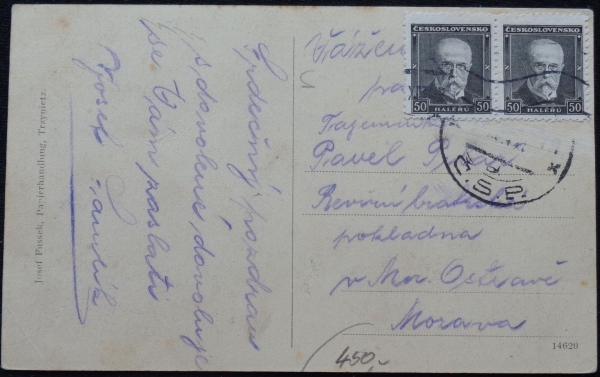 Srdečný pozdrav
s dovolené dovoluje
se Vám zaslati
Josef
Josef Pussek, Papierhandlung, Trzynietz.
ČESKOSLOVENSKO
50 HALÉŘŮ 50
ČESKOSLOVENSKO
50 HALÉŘŮ 50
Vážen
Tajemník
Pavel
Revírní bratrská
pokladna
v Mor. Ostravě
Morava
450,-
14620